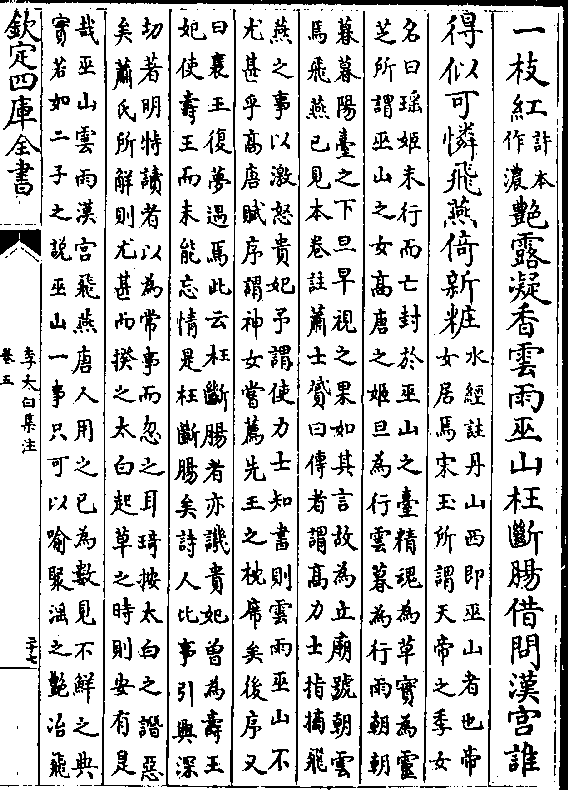 一枝紅許本作濃艷露凝香雲雨巫山枉斷腸借問漢宮誰
得似可憐飛燕倚新粧水經註丹山西即巫山者也帝
女居焉宋玉所謂天帝之季女
名曰瑶姬未行而亡封於巫山之臺精魂為草實為靈
芝所謂巫山之女高唐之姬旦為行雲暮為行雨朝朝
暮暮陽臺之下旦早視之果如其言故為立廟號朝雲
焉飛燕已見本卷註蕭士贇曰傳者謂高力士指摘飛
燕之事以激怒貴妃予謂使力士知書則雲雨巫山不
尤甚乎高唐賦序謂神女嘗薦先王之枕席矣後序又
曰襄王復夢遇焉此云枉斷腸者亦譏貴妃曾為壽王
妃使壽王而未能忘情是枉斷腸矣詩人比事引興深
切著明特讀者以為常事而忽之耳琦按太白之譖惡
矣蕭氏所解則尤甚而揆之太白起草之時則安有是
哉巫山雲雨漢宮飛燕唐人用之已為數見不鮮之典
實若如二子之說巫山一事只可以喻聚淫之艷冶飛
欽定四庫全書
李太白集注
卷五
二十七